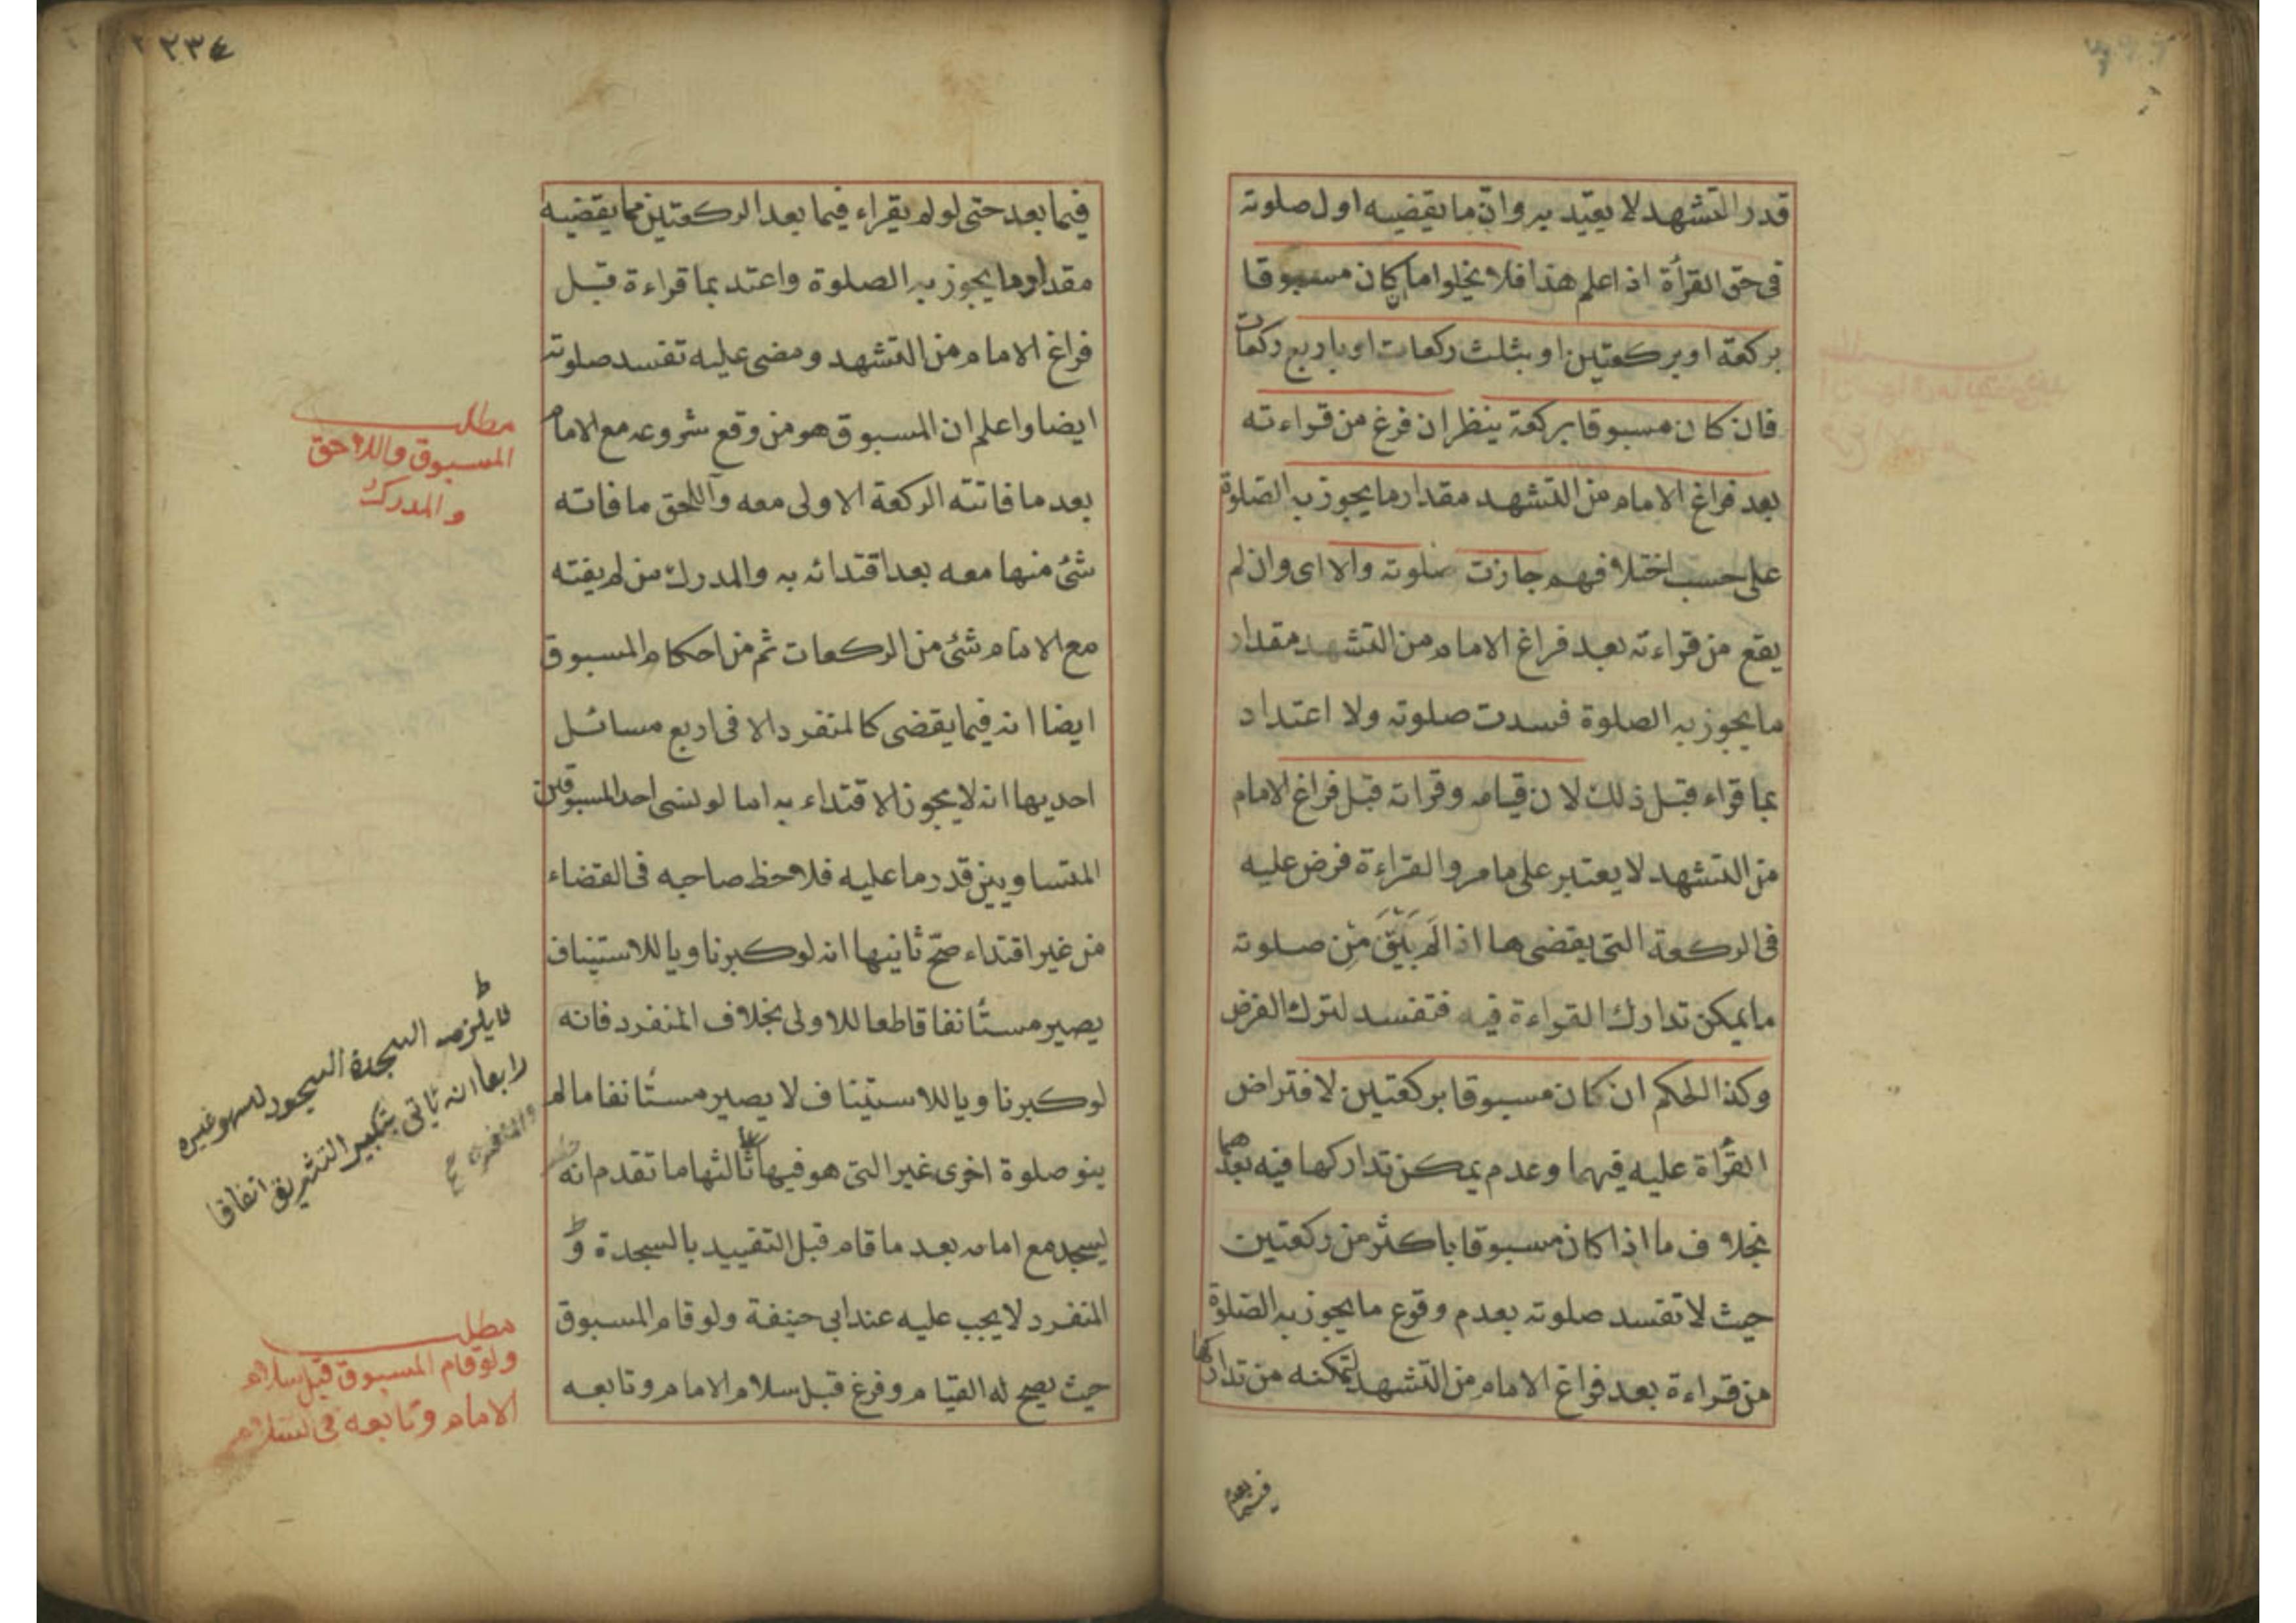 قدر التشهد لا يعتد به وان ما يقضيه اول صلوته
فى حق القرأة اذا علم هذا فلا يخلوا اما كان مسبوقا
بركعة او بركعتين او بثلث ركعات او باربع ركعات
فان كان مسبوقا بركعة ينظر ان فرغ من قراءته
بعد فراغ الامام من التشهد مقدار ما يجوز به الصلوة
على حسب اختلافهم جازت صلوته والا اى وان لم
يقع من قراءته بعد فراغ الامام من التشهد مقدار
ما يجوز به الصلوة فسدت صلوته ولا اعتداد
بما قراء قبل ذلك لان قيامه وقراته قبل فراغ الامام
من التشهد لا يعتبر على ما مر والقراءة فرض عليه
فى الركعة التى يقضى ها اذ الَم يَبْقَ مِن صلوته
ما يمكن تدارك القراءة فيه فتفسد لترك الفرض
وكذا الحكم ان كان مسبوقا بركعتين لافتراض
القرأة عليه فيهما وعدم يمكن تداركها فيه بعدهما
بخلاف ما اذا كان مسبوقا باكثر من ركعتين
حيث لا تفسد صلوته بعدم وقوع ما يجوز به الصلوة
من قراءة بعد فراغ الامام من التشهد لتمكنه من تداركها
فيما بعد
٢٣٤
فيما بعد حتى لو لم يقراء فيما بعد الركعتين مما يقضيه
مقدار ما يجوز به الصلوة واعتد بما قراءة قبل
فراغ الامام من التشهد ومضى عليه تفسد صلوته
ايضا واعلم ان المسبوق هو من وقع شروعه مع الامام
بعد ما فاتته الركعة الاولى معه واللاحق ما فاته
شئ منها معه بعد اقتدائه به والمدرك من لم يفته
مع الامام شئ من الركعات ثم من احكام المسبوق
ايضا انه فيما يقضى كالمنفرد الا فى اربع مسائل
احديها انه لا يجوز الاقتداء به اما لو نسى احد المسبوقين
المتساويين قدر ما عليه فلاحظ صاحبه فى القضاء
من غير اقتداء صحّ ثانيها انه لو كبر ناويا للاستيناف
يصير مستأنفا قاطعا للاولى بخلاف المنفرد فانه
لو كبر ناويا للاستيناف لا يصير مستأنفا ما لم
ينو صلوة اخرى غير التى هو فيها ثالثها ما تقدم انه
يسجد مع امامه بعد ما قام قبل التقييد بالسجدة و
المنفرد لا يجب عليه عند ابى حنيفة ولو قام المسبوق
حيث يصح له القيام وفرغ قبل سلام الامام وتابعه
مطلب
المسبوق واللاحق
والمدرك
يلزمه السجدة السجود لسهو غيره
رابعا انه ياتى بتكبير التشريق اتفاقا
والمنفرد
مطلب
ولو قام المسبوق قبل سلام
الامام وتابعه فى السلام